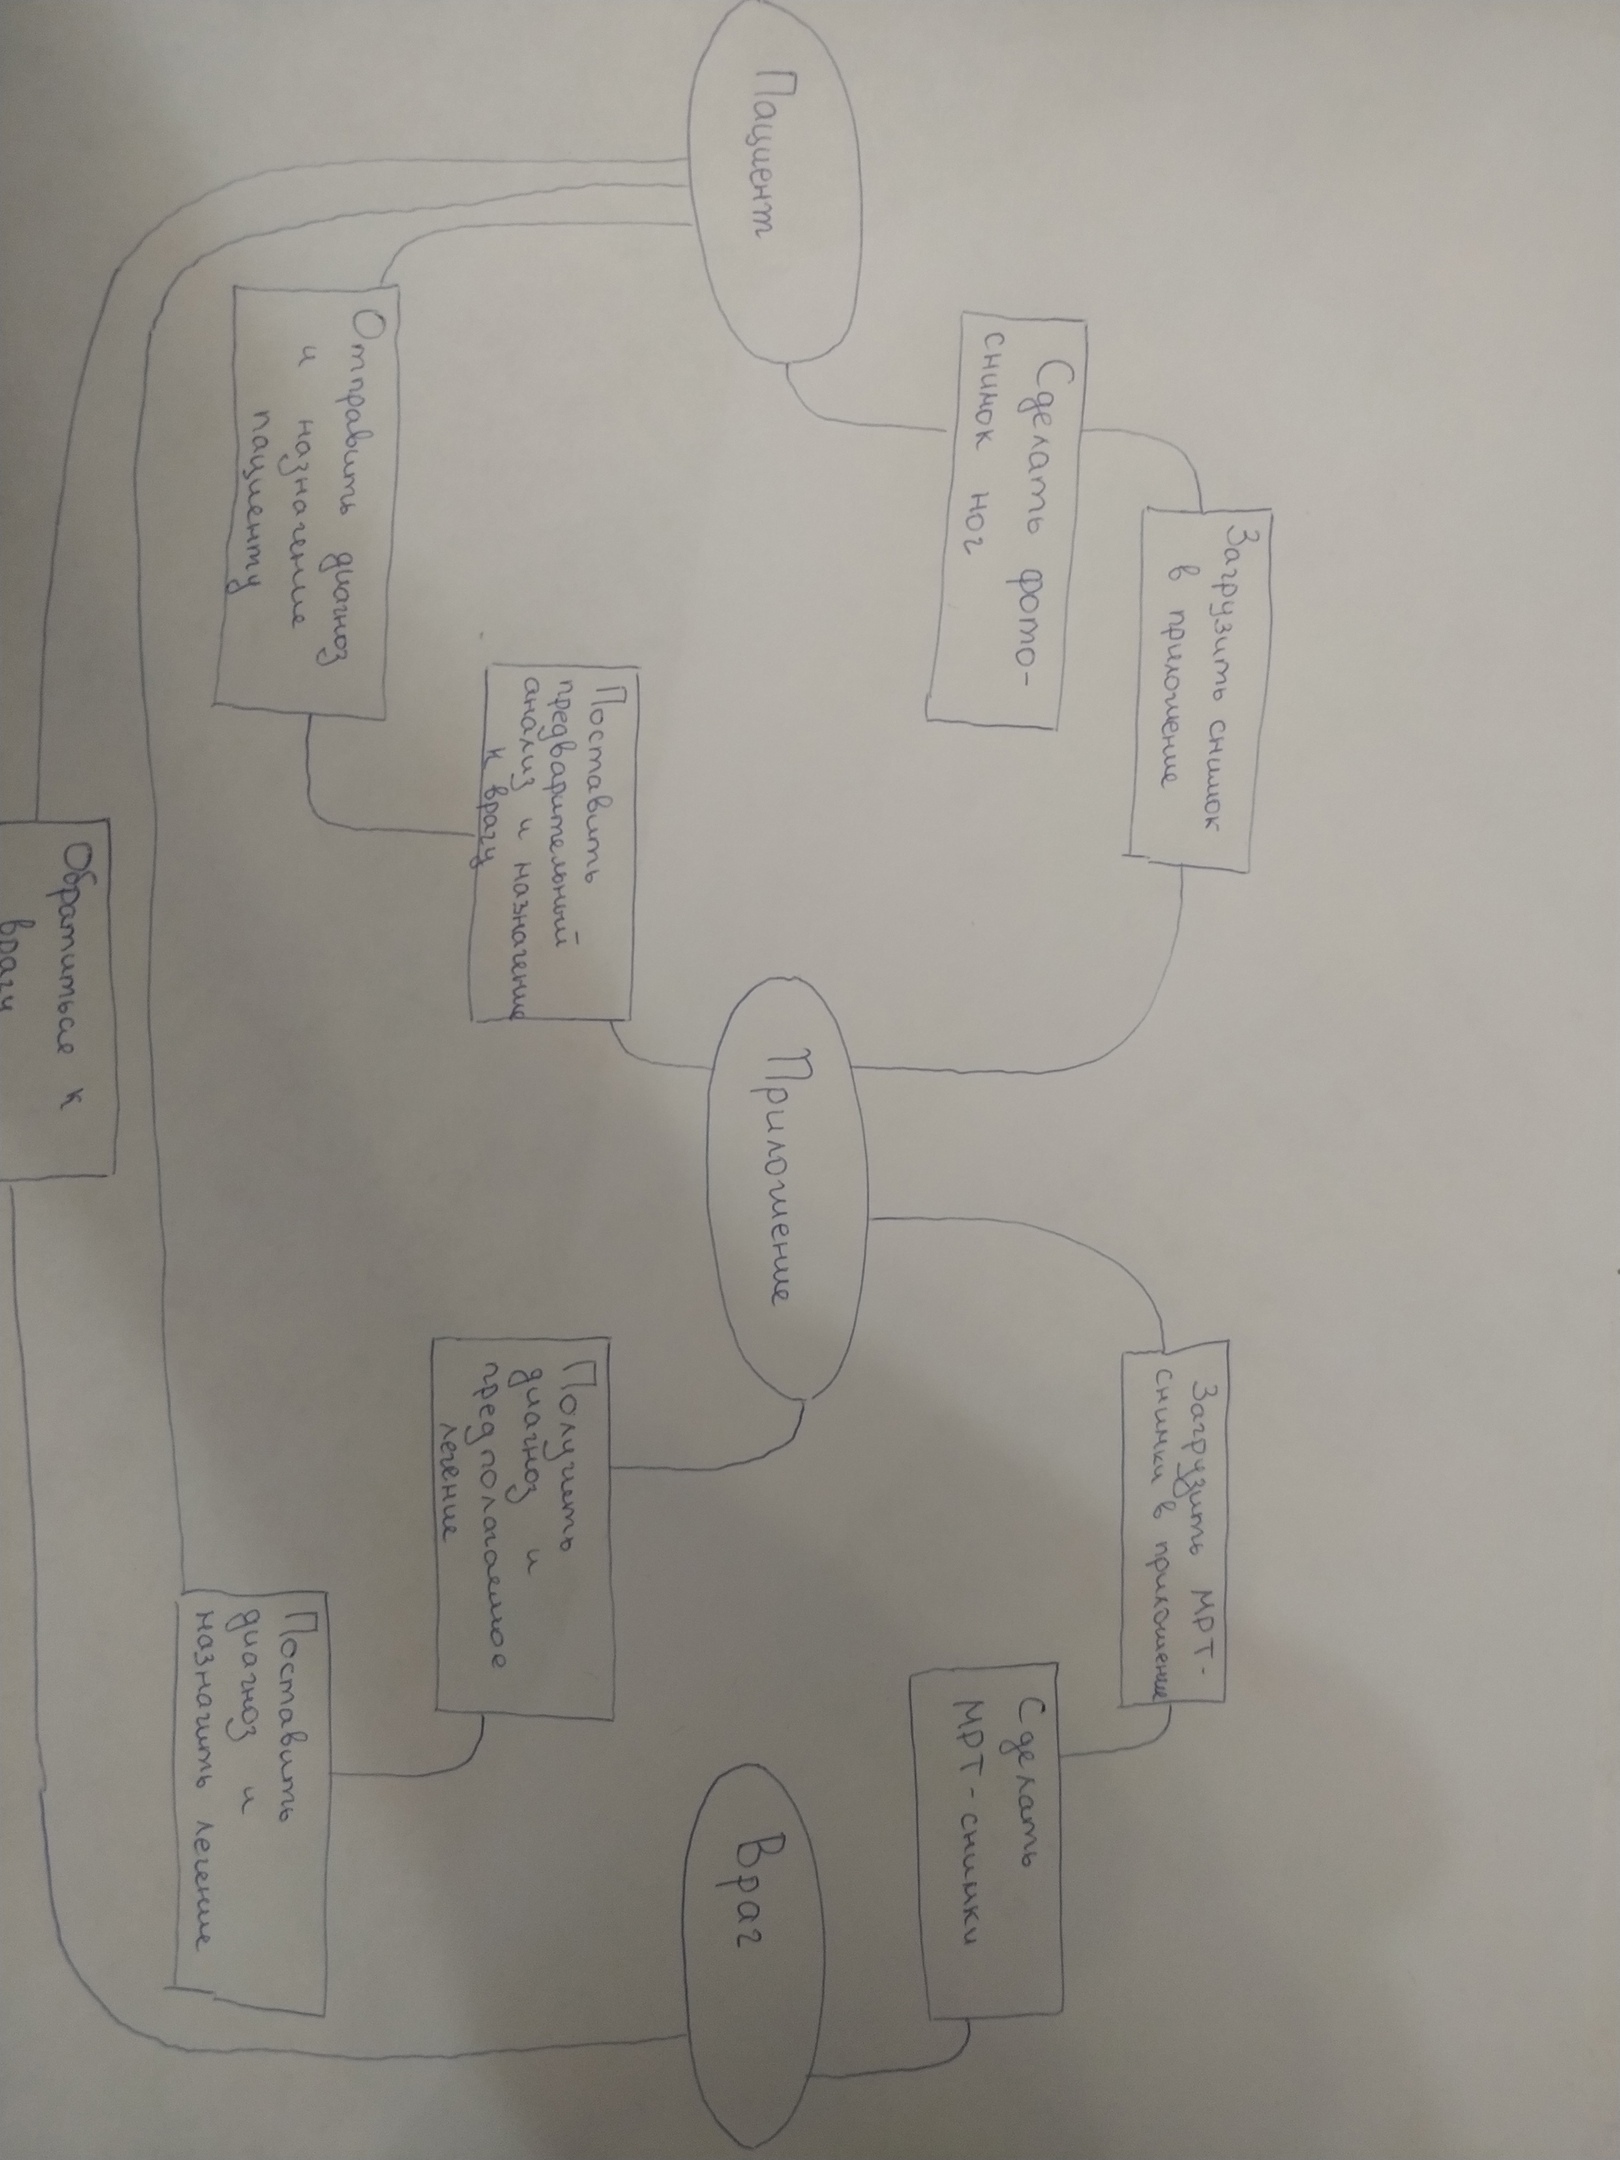 Загрузить снимок
в приложение
Загрузить МРТ-
снимки в приложение
Сделать фото-
снимок ног
Сделать
МРТ-снимки
Пациент
Приложение
Врач
Поставить
предварительный
анализ и назначение
к врачу
Получить
диагноз и
предполагаемое
лечение
Отправить диагноз
и назначение
пациенту
Поставить
диагноз и
назначить лечение
Обратиться к
врачу